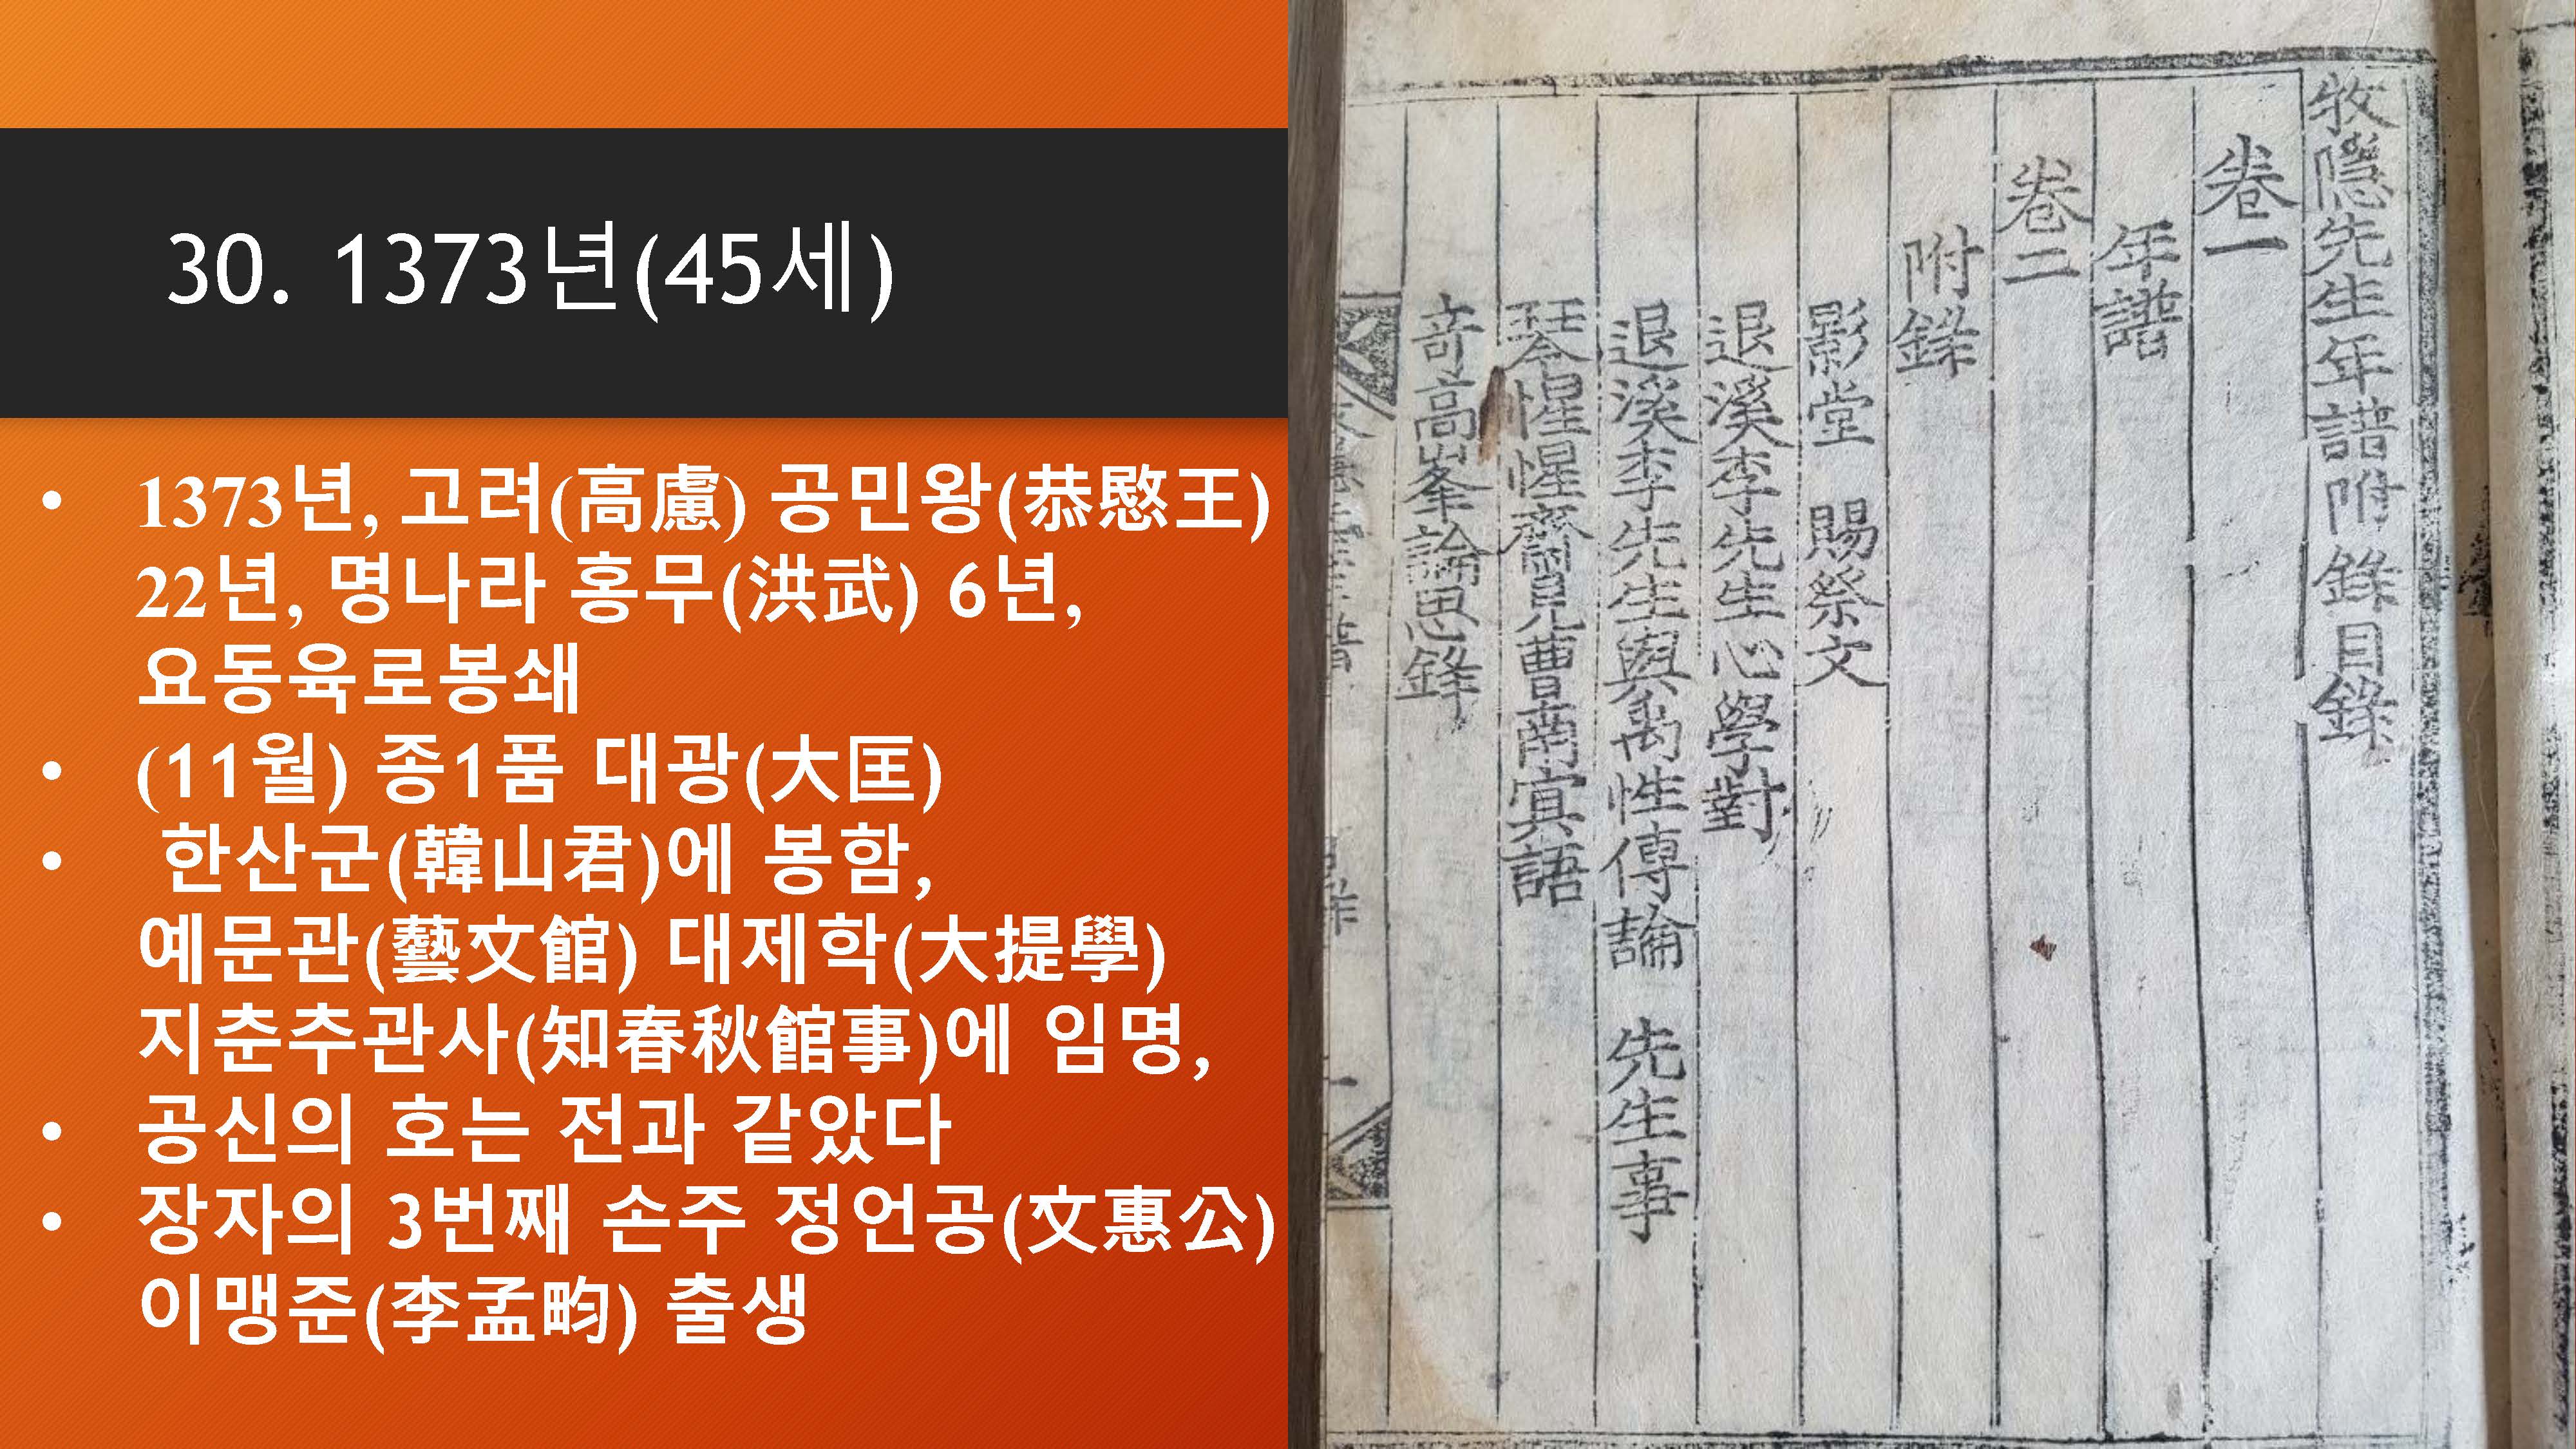 30. 1373년(45세)
• 1373년, 고려(高慮) 공민왕(恭愍王)
22년, 명나라 홍무(洪武) 6년,
요동육로봉쇄
• (11월) 종1품 대광(大匡)
• 한산군(韓山君)에 봉함,
예문관(藝文館) 대제학(大提學)
지춘추관사(知春秋館事)에 임명,
• 공신의 호는 전과 같았다
• 장자의 3번째 손주 정언공(文惠公)
이맹준(李孟畇) 출생
牧隱先生年譜附錄目錄
卷一
年譜
卷二
附錄
影堂 賜祭文
退溪李先生心學對
退溪李先生與禹性傳論 先生事
琴惺惺齋見曹南冥語
奇高峯論思錄